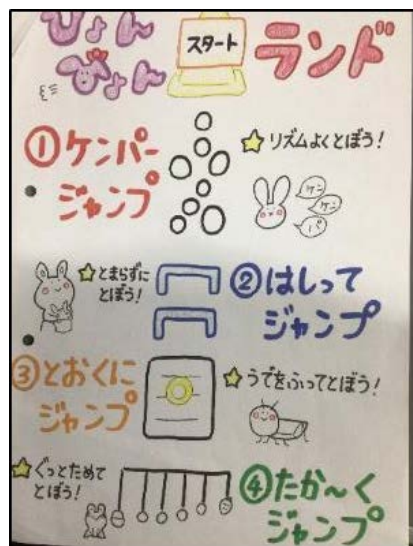 ぴょん
ぴょん
スタート
ランド
①ケンパー
ジャンプ
☆リズムよくとぼう!
ケン
ケン
パ
☆とまらずに
とぼう!
②はしって
ジャンプ
③とおくに
ジャンプ
☆うでをふってとぼう!
☆ぐっとためて
とぼう!
④たか〜く
ジャンプ